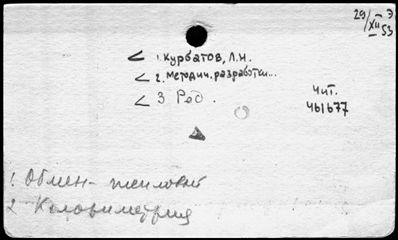 29/XII 53 Э
1. Курбатов, Л.Н.
2. Методич. разработки...
3 Ред.
Чит.
461677
1. Обмен- тепловой
2 Калориметрия